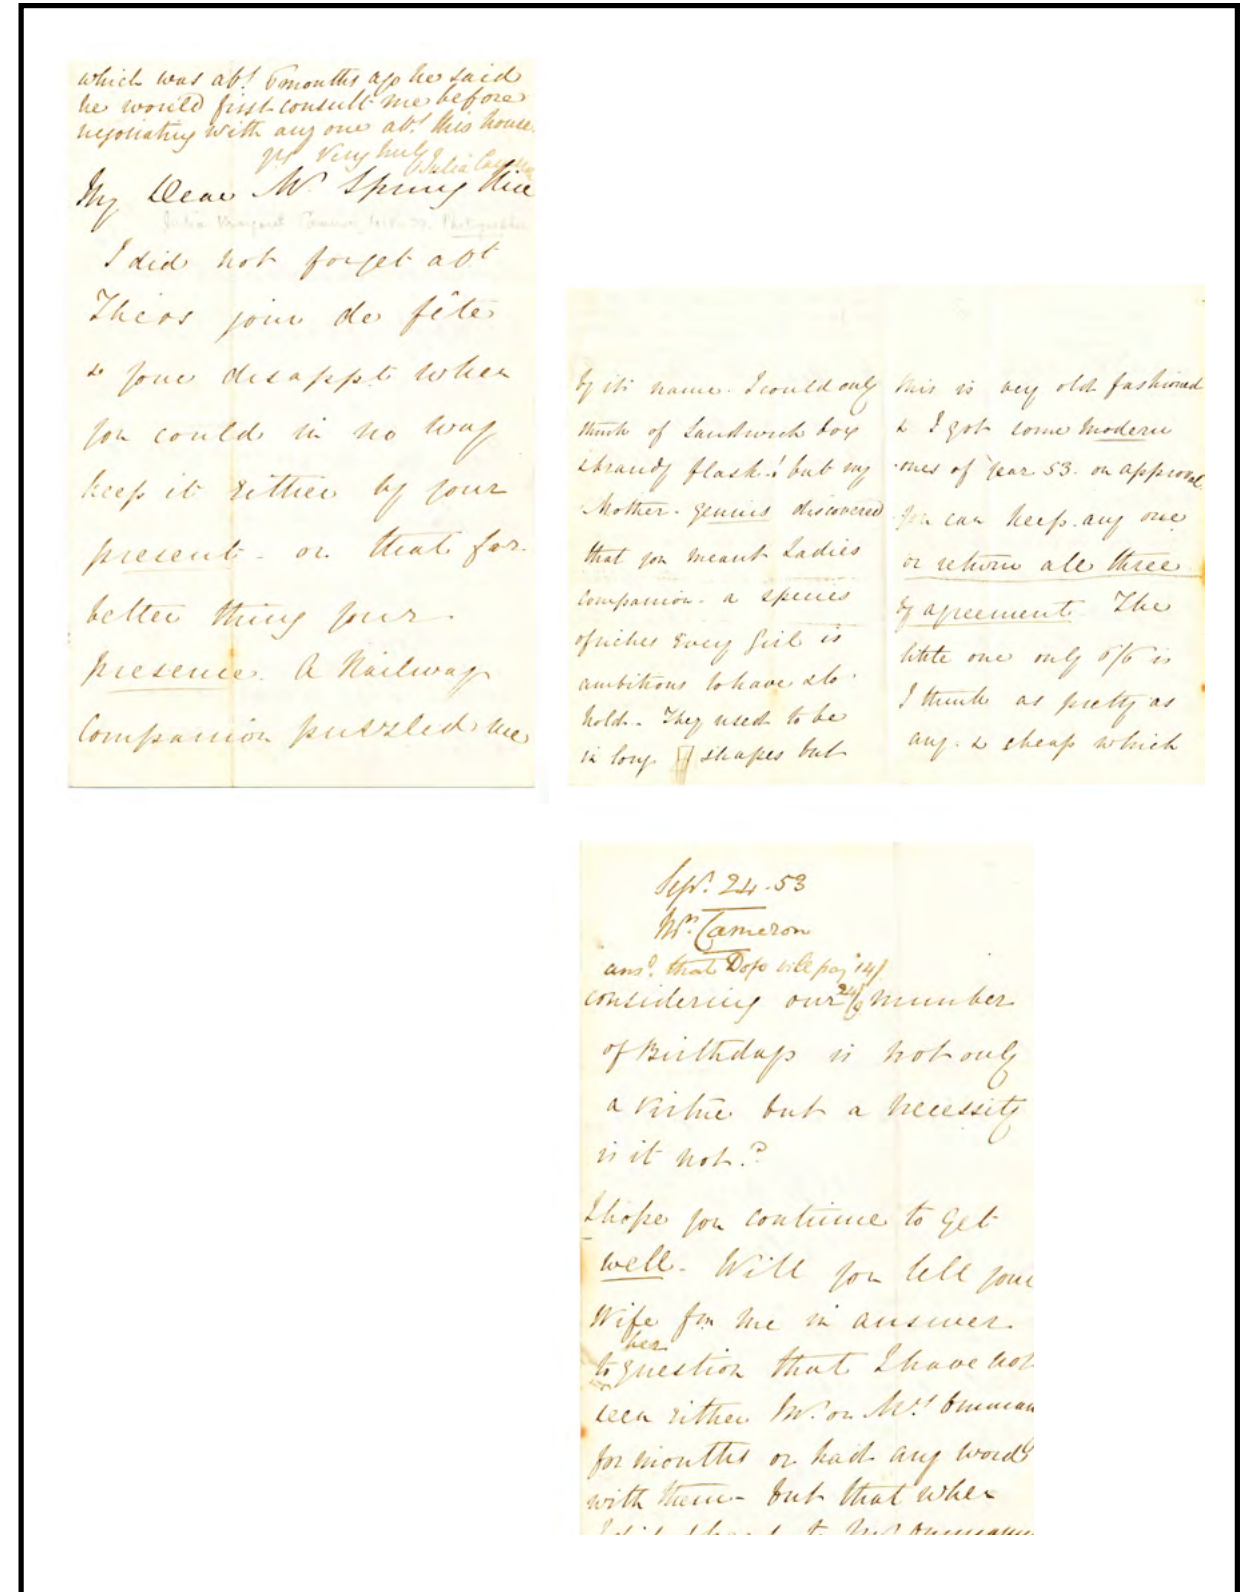 which was abt. 6 months ago he said
he would first consult me before
negotiating with any one abt. this house.
yrs very truly Julia Cameron
My Dear Mr. Spring Rice
Julia Margaret Cameron, Photographer
I did not forget abt
Theos jour de fête
& your disappt. when
you could in no way
keep it either by your
present - or that far
better thing your
presence. A Railway
Companion puzzled me
by its name. I could only
think of Sandwich box
& brandy flask! but my
Mother-genius discovered
that you meant Ladies
companion - a species
of riches every girl is
ambitious to have & to
hold. They used to be
in long shapes but
this is very old fashioned
& I got some modern
ones of year 53. on approval
you can keep any one
or return all three
by agreement. The
little one only 6/6 is
I think as pretty as
any. & cheap which
Sepr. 24. 53
Mrs. Cameron
ansd. that will pay 14/
24/9
considering our number
of Birthdays is not only
a virtue but a necessity
is it not.?
I hope you continue to get
well. Will you tell your
Wife for me in answer
to her question that I have not
seen either Mr. or Mrs.
for months or had any words
with them - but that when